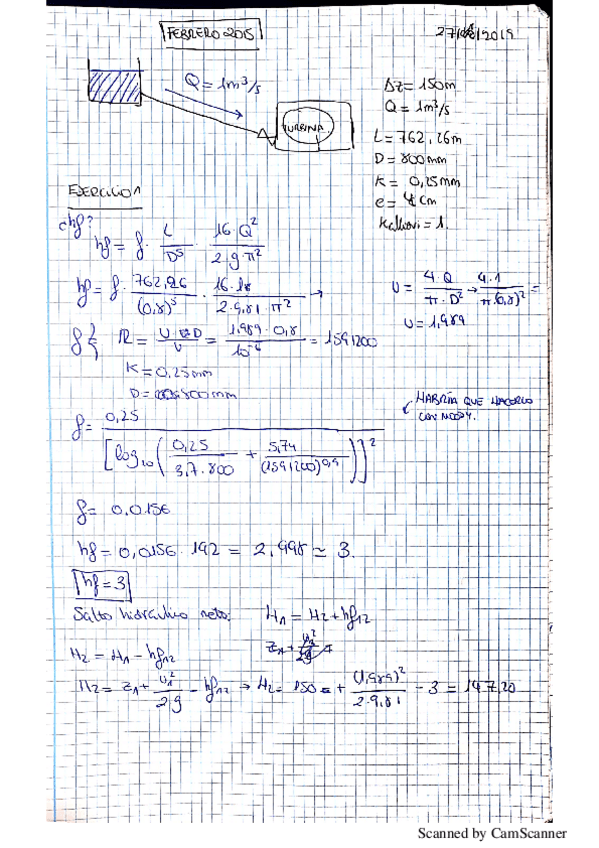 FEBRERO 2015
Q = 1m³/s
TURBINA
Δz = 150m
Q = 1m³/s
L = 762,26m
D = 800mm
K = 0,25mm
e = 4 cm
= 1.
EJERCICIO 1
¿hf?
hf = f · L/D⁵ · 16·Q²/2·g·π²
hf = f · 762,26/(0,8)⁵ · 16·1²/2·9,81·π² →
U = 4·Q/π·D² → 4·1/π(0,8)² =
U = 1,989
f { R = U·D/ν = 1,989·0,8/10⁻⁶ = 1591200
K = 0,25mm
D = 800mm
HABRÍA QUE HACERLO
CON MOODY.
f = 0,25/[log₁₀(0,25/3,7·800 + 5,74/(1591200)^0,9)]²
f = 0,0156
hf = 0,0156 · 192 = 2,998 ≃ 3.
hf = 3
Salto hidráulico neto: H₁ = H₂ + hf₁₂
H₂ = H₁ - hf₁₂
H₂ = z₁ + U₁²/2g - hf₁₂ → H₂ = 150 + (1,989)²/2·9,81 - 3 = 147,20
Scanned by CamScanner